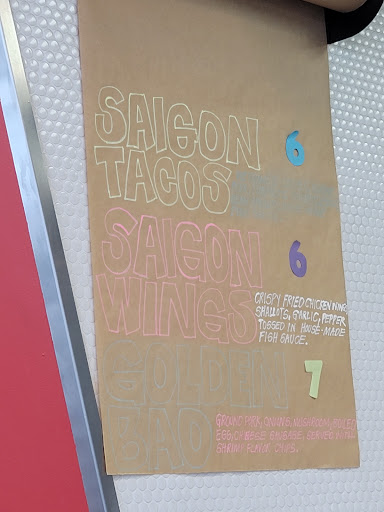 SAIGON
TACOS
6
SAIGON
WINGS
6
CRISPY FRIED CHICKEN WING
SHALLOTS, GARLIC, PEPPER
TOSSED IN HOUSE-MADE
FISH SAUCE.
GOLDEN
BAO
7
GROUND PORK, ONIONS, MUSHROOM, BOILED
EGG, CHEESE SAUSAGE. SERVED WITH
SHRIMP FLAVOR CHIPS.